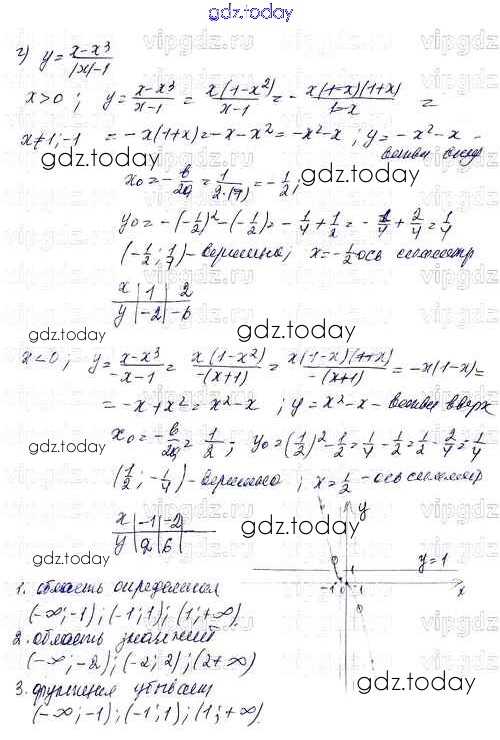 gdz.today
г) y = x-x³/|x|-1
x>0 ; y = x-x³/x-1 = x(1-x²)/x-1 = - x(1-x)(1+x)/1-x =
x≠1;-1 = -x(1+x) = -x-x² = -x²-x ; y = -x²-x -
gdz.today ветви вниз
x₀ = -b/2a = 1/2·(-1) = -1/2 ;
gdz.today
y₀ = -(-1/2)² - (-1/2) = -1/4 + 1/2 = -1/4 + 2/4 = 1/4
(-1/2 ; 1/4) - вершина ; x = -1/2 ось симметр
x | 1 | 2
y | -2 | -6
gdz.today gdz.today
x<0 ; y = x-x³/-x-1 = x(1-x²)/-(x+1) = x(1-x)(1+x)/-(x+1) = -x(1-x) =
= -x+x² = x²-x ; y = x²-x - ветви вверх
x₀ = -b/2a = 1/2 ; y₀ = (1/2)² - 1/2 = 1/4 - 1/2 = 1/4 - 2/4 = -1/4
gdz.today
(1/2 ; -1/4) - вершина ; x = 1/2 - ось симметр
gdz.today
x | -1 | -2
y | 2 | 6
gdz.today
y
y=1
1
-1 0 1 x
gdz.today
1. область определения
(-∞;-1) ; (-1;1) ; (1;+∞)
2. область значений
(-∞;-2) ; (-2;2) ; (2+∞)
3. функция убывает
(-∞;-1) ; (-1;1) ; (1;+∞)
gdz.today
gdz.today